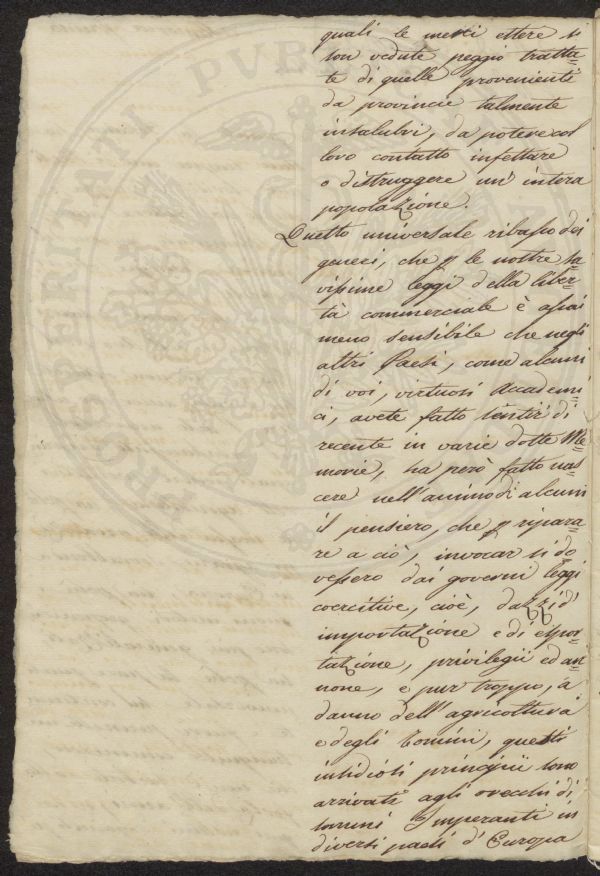 quali le merci ettere si
son vedute peggio tratta=
te di quelle provenienti
da provincie talmente
insalubri, da potere col
loro contatto infettare
o distruggere un' intera
popolazione.
Questo universale ribasso dei
generi, che p le nostre sa=
vissime leggi della liber=
tà commerciale è assai
meno sensibile che negli
altri Paesi, come alcuni
di voi, virtuosi Accademi=
ci, avete fatto sentir di
recente in varie dotte Me=
morie, ha però fatto nas=
cere nell' animo di alcuni
il pensiero, che p ripara=
re a ciò, invocar si do
vessero dai governi leggi
coercitive, cioè, dazzi d'
importazione e di espor=
tazione, privilegii ed an=
none, e pur troppo, a
danno dell' agricoltura
e degli Uomini, questi
insidiosi principii sono
arrivati agli orecchi di
sommi Imperanti in
diversi paesi d' Europa
PROSPERITATI PUBLICAE